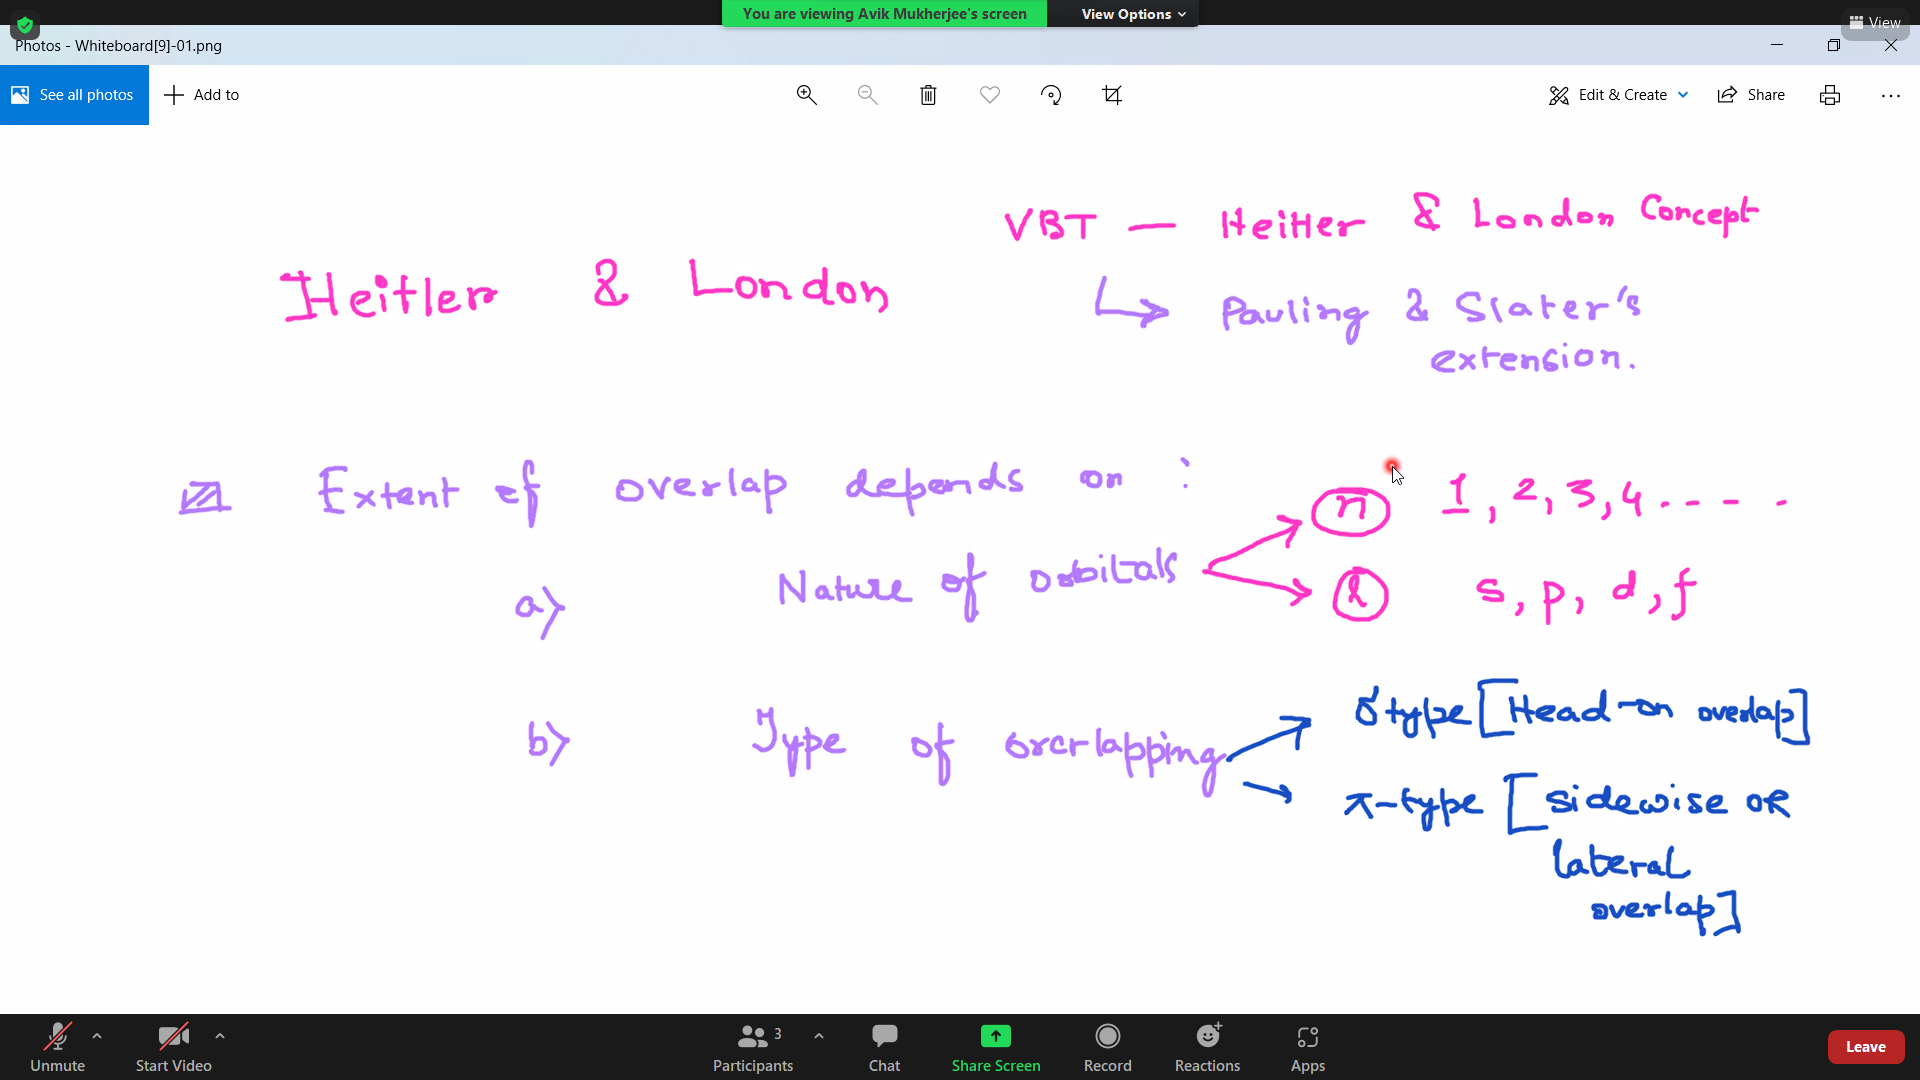 You are viewing Avik Mukherjee's screen
View Options
View
Photos - Whiteboard[9]-01.png
See all photos
Add to
Edit & Create
Share
VBT — Heitler & London Concept
Heitler & London
Pauling & Slater's
extension.
Extent of overlap depends on :
n 1, 2, 3, 4 . - - - .
a) Nature of orbitals
l s, p, d, f
b) Type of overlapping
σ type [Head-on overlap]
π-type [sidewise OR
lateral
overlap]
Unmute
Start Video
Participants 3
Chat
Share Screen
Record
Reactions
Apps
Leave